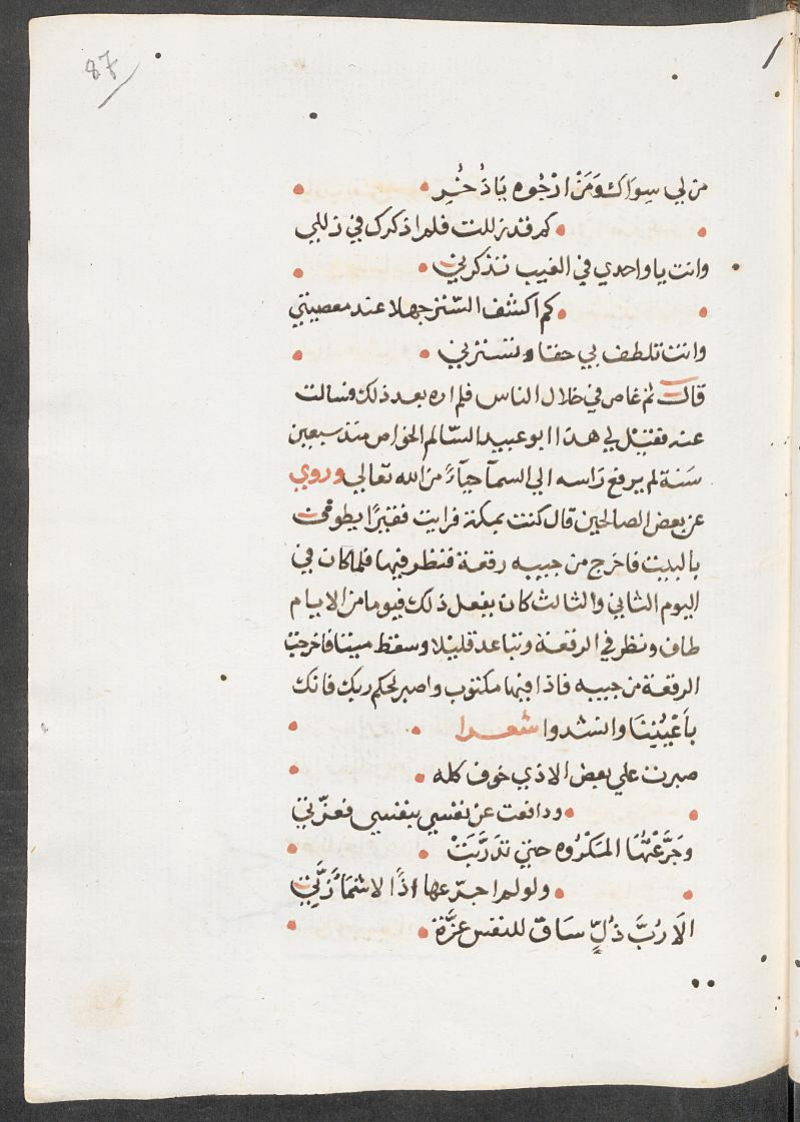 87
من لي سِوَاك وَمَنْ ارْجُوه يَا ذُخْرِ
كم قد زللت فلم اذكرك في زللي
وانت يا واحدي في الغيب تذكرني
كم اكشف الستر جهلا عند معصيتي
وانت تلطف بي حقا وتسترني
قال ثم غاص في خلال الناس فلم اره بعد ذلك فسالت
عنه فقيل لي هذا ابو عبيد السالم الخواص منذ سبعين
سنة لم يرفع راسه الي السمآ حيآءً من الله تعالي وروي
عن بعض الصالحين قال كنت بمكة فرايت فقيرًا يطوف
بالبيت فاخرج من جيبه رقعة فنظر فيها فلما كان في
اليوم الثاني والثالث كان يفعل ذلك فيوما من الايام
طاف ونظر في الرقعة وتباعد قليلا وسقط ميتا فاخرجت
الرقعة من جيبه فاذا فيها مكتوب واصبر لحكم ربك فانك
بأَعْيُنِنَا وانشدوا شعرا
صبرت علي بعض الاذي خوف كله
ودافعت عن نفسي بنفسي فعزّتي
وَجَرَّعْتُهَا المَكْرُوه حتي تدَرَّبَتْ
ولو لم اجرّعها اذًا لاشمَأَزَّتِ
الَا رُبَّ ذُلٍّ سَاق للنفس عزَّة